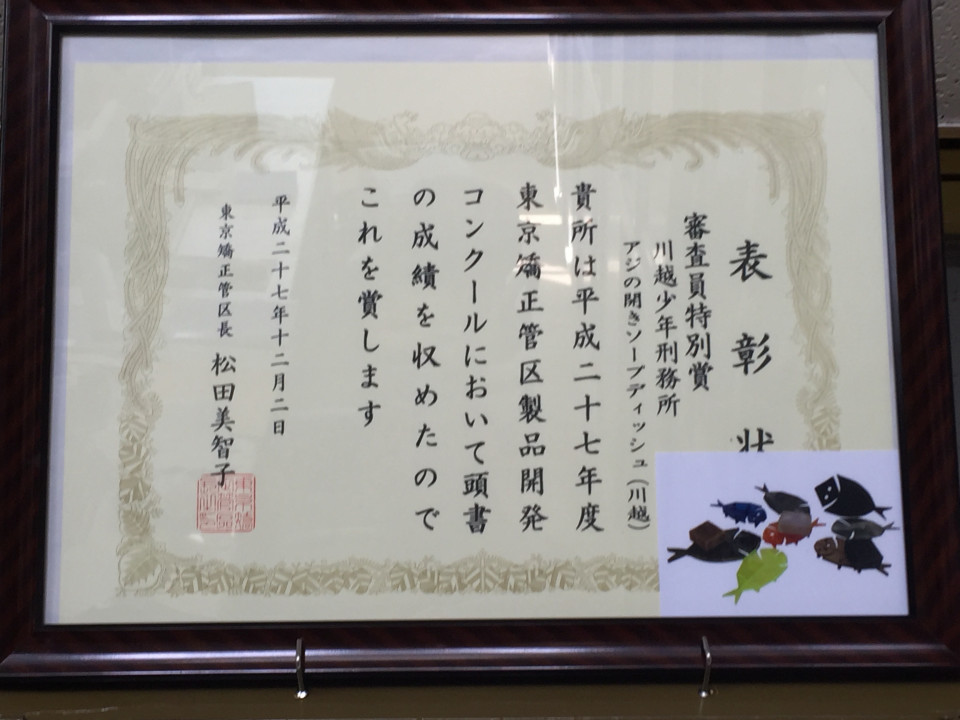 表彰状
審査員特別賞
川越少年刑務所
アジの開きソープディッシュ（川越）
貴所は平成二十七年度
東京矯正管区製品開発
コンクールにおいて頭書
の成績を収めたので
これを賞します
平成二十七年十二月二日
東京矯正管区長 松田美智子